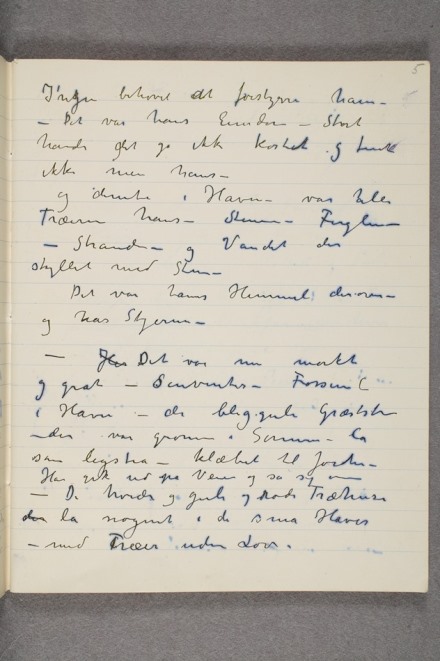 5
Ingen behøved at forstyrre ham –
– Det var hans Eiendom – Stort
havde det jo ikke kostet og
ikke men hans –
og i Haven – var hele
Træerne hans – Stenene – Fuglene
– Stranden – og Vandet der
skyllet mod Sten –
Det var hans Himmel deroven –
og hans Stjerner –
– Det var nu mørkt
og grat – Senvinter –
i Haven – de bleggule Græstster
– der var grønne i Sommer – la
som ligstra – klæbet til Jorden –
Han gik ud på Veien og så sig om
– De hvide og gule og røde Træhuse
la nøgent i de sma Haver
– med Træer uden Løv.